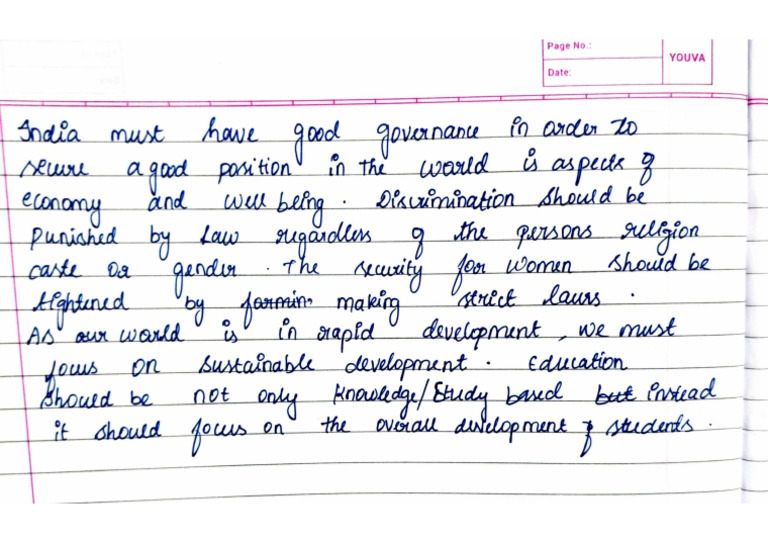 Page No.:
YOUVA
Date:
India must have good governance in order to
secure a good position in the world is aspects of
economy and well being. Discrimination should be
punished by law regardless of the persons religion
caste or gender. The security for women should be
tightened by making strict laws.
As our world is in rapid development, we must
focus on sustainable development. Education
should be not only knowledge/study based but instead
it should focus on the overall development of students.